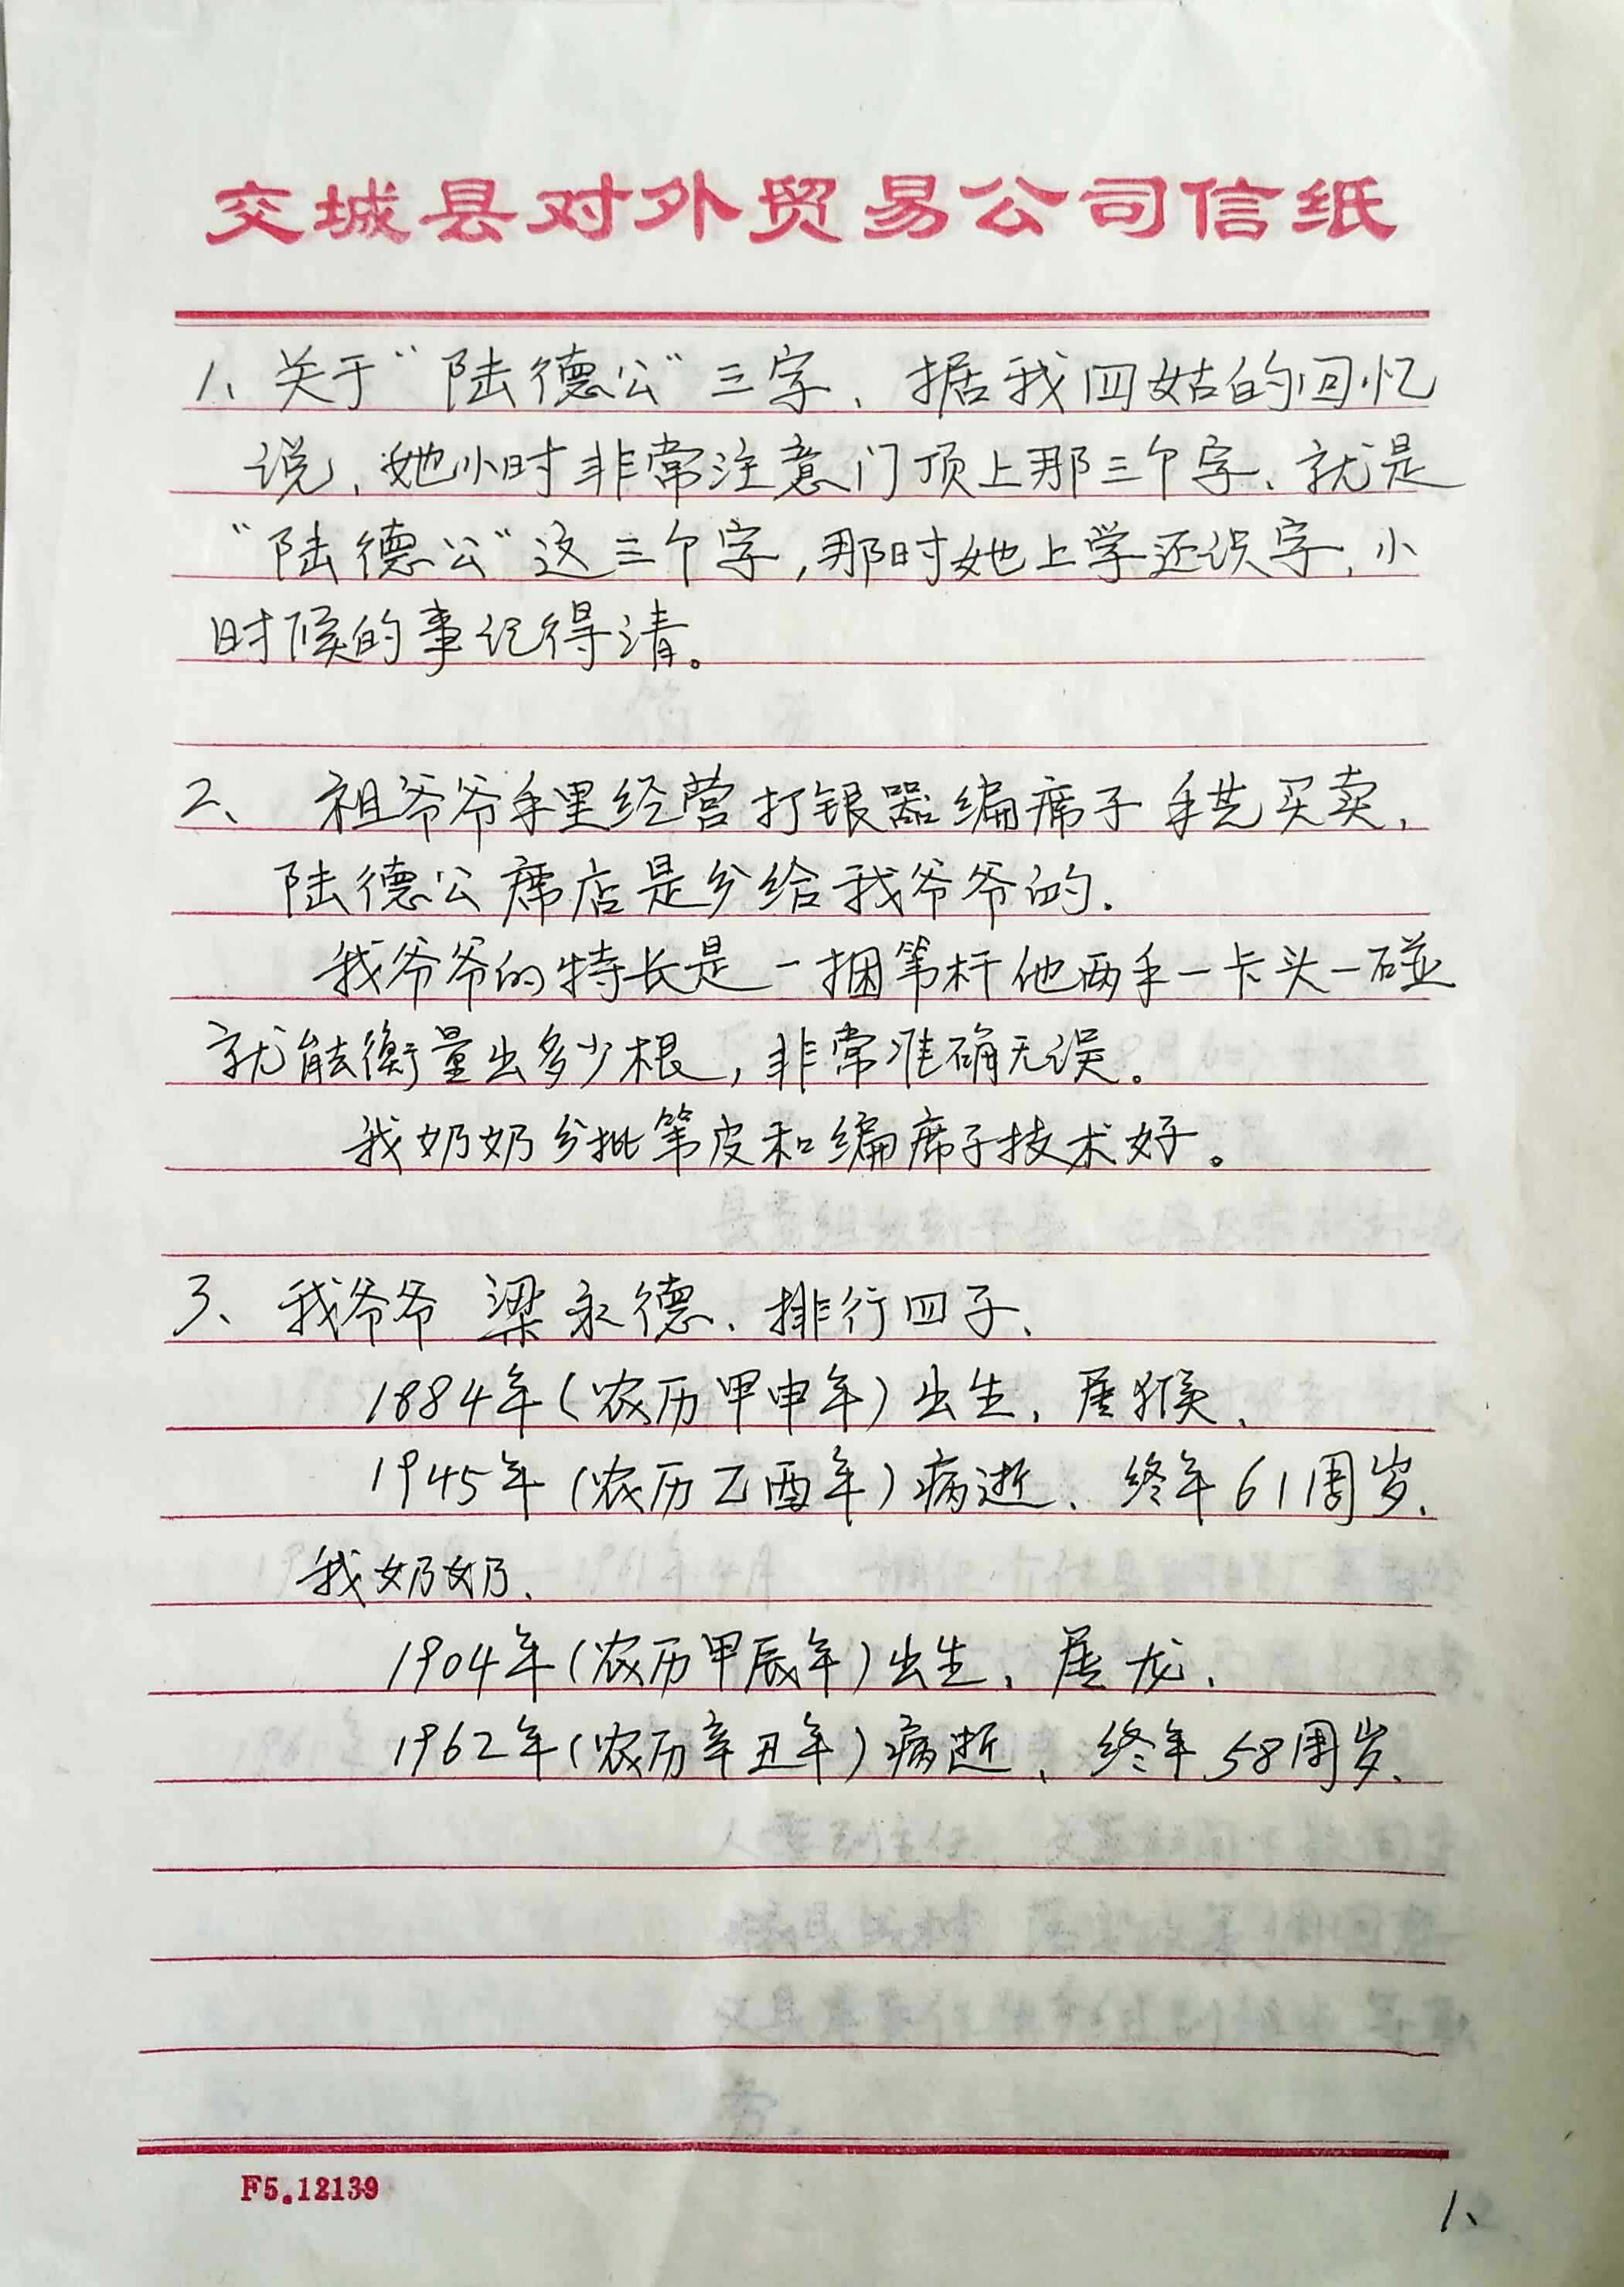 交城县对外贸易公司信纸
1、关于“陆德公”三字、据我四姑的回忆
说，她小时非常注意门顶上那三个字、就是
“陆德公”这三个字，那时她上学还识字，小
时候的事记得清。
2、祖爷爷手里经营打银器编席子手艺买卖，
陆德公席店是分给我爷爷的.
我爷爷的特长是一捆苇杆他两手一卡头一碰
就能衡量出多少根，非常准确无误。
我奶奶分批苇皮和编席子技术好。
3、我爷爷 梁永德、排行四子、
1884年(农历甲申年)出生，属猴、
1945年(农历乙酉年)病逝、终年61周岁.
我奶奶、
1904年(农历甲辰年)出生，属龙，
1962年(农历辛丑年)病逝、终年58周岁、
F5.12139
1、